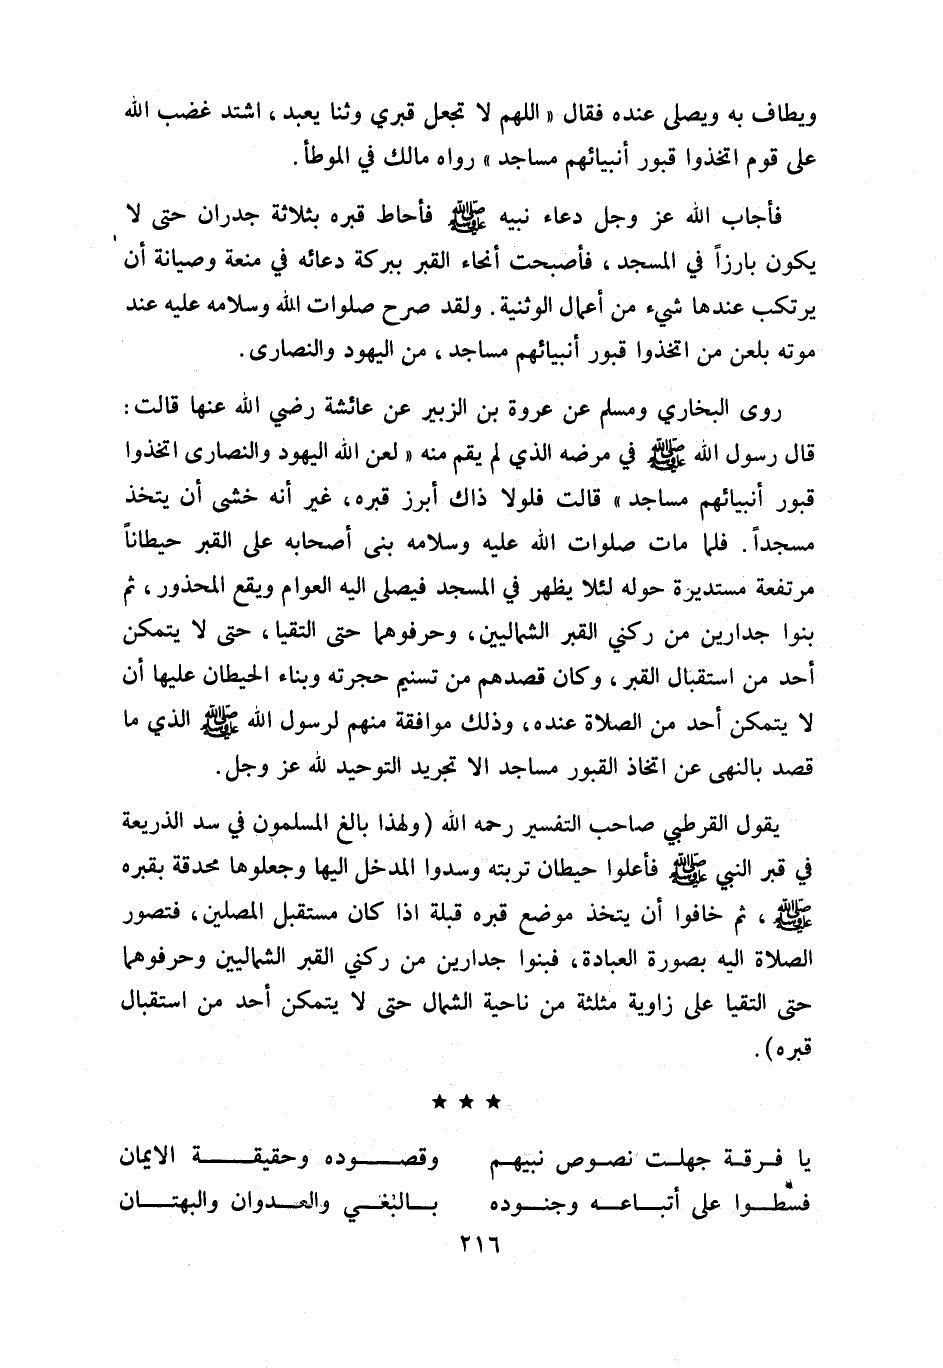 ويطاف به ويصلى عنده فقال « اللهم لا تجعل قبري وثنا يعبد ، اشتد غضب الله
على قوم اتخذوا قبور أنبيائهم مساجد » رواه مالك في الموطأ .
فأجاب الله عز وجل دعاء نبيه ﷺ فأحاط قبره بثلاثة جدران حتى لا
يكون بارزاً في المسجد ، فأصبحت أنحاء القبر ببركة دعائه في منعة وصيانة أن
يرتكب عندها شيء من أعمال الوثنية . ولقد صرح صلوات الله وسلامه عليه عند
موته بلعن من اتخذوا قبور أنبيائهم مساجد ، من اليهود والنصارى .
روى البخاري ومسلم عن عروة بن الزبير عن عائشة رضي الله عنها قالت :
قال رسول الله ﷺ في مرضه الذي لم يقم منه « لعن الله اليهود والنصارى اتخذوا
قبور أنبيائهم مساجد » قالت فلولا ذاك أبرز قبره ، غير أنه خشى أن يتخذ
مسجداً . فلما مات صلوات الله عليه وسلامه بنى أصحابه على القبر حيطاناً
مرتفعة مستديرة حوله لئلا يظهر في المسجد فيصلى اليه العوام ويقع المحذور ، ثم
بنوا جدارين من ركني القبر الشماليين ، وحرفوهما حتى التقيا ، حتى لا يتمكن
أحد من استقبال القبر ، وكان قصدهم من تسنيم حجرته وبناء الحيطان عليها أن
لا يتمكن أحد من الصلاة عنده ، وذلك موافقة منهم لرسول الله ﷺ الذي ما
قصد بالنهى عن اتخاذ القبور مساجد الا تجريد التوحيد لله عز وجل .
يقول القرطبي صاحب التفسير رحمه الله ( ولهذا بالغ المسلمون في سد الذريعة
في قبر النبي ﷺ فأعلوا حيطان تربته وسدوا المدخل اليها وجعلوها محدقة بقبره
ﷺ ، ثم خافوا أن يتخذ موضع قبره قبلة اذا كان مستقبل المصلين ، فتصور
الصلاة اليه بصورة العبادة ، فبنوا جدارين من ركني القبر الشماليين وحرفوهما
حتى التقيا على زاوية مثلثة من ناحية الشمال حتى لا يتمكن أحد من استقبال
قبره ) .
★ ★ ★
يا فرقة جهلت نصوص نبيهم وقصوده وحقيقة الايمان
فسطوا على أتباعه وجنوده بالبغي والعدوان والبهتان
٢١٦